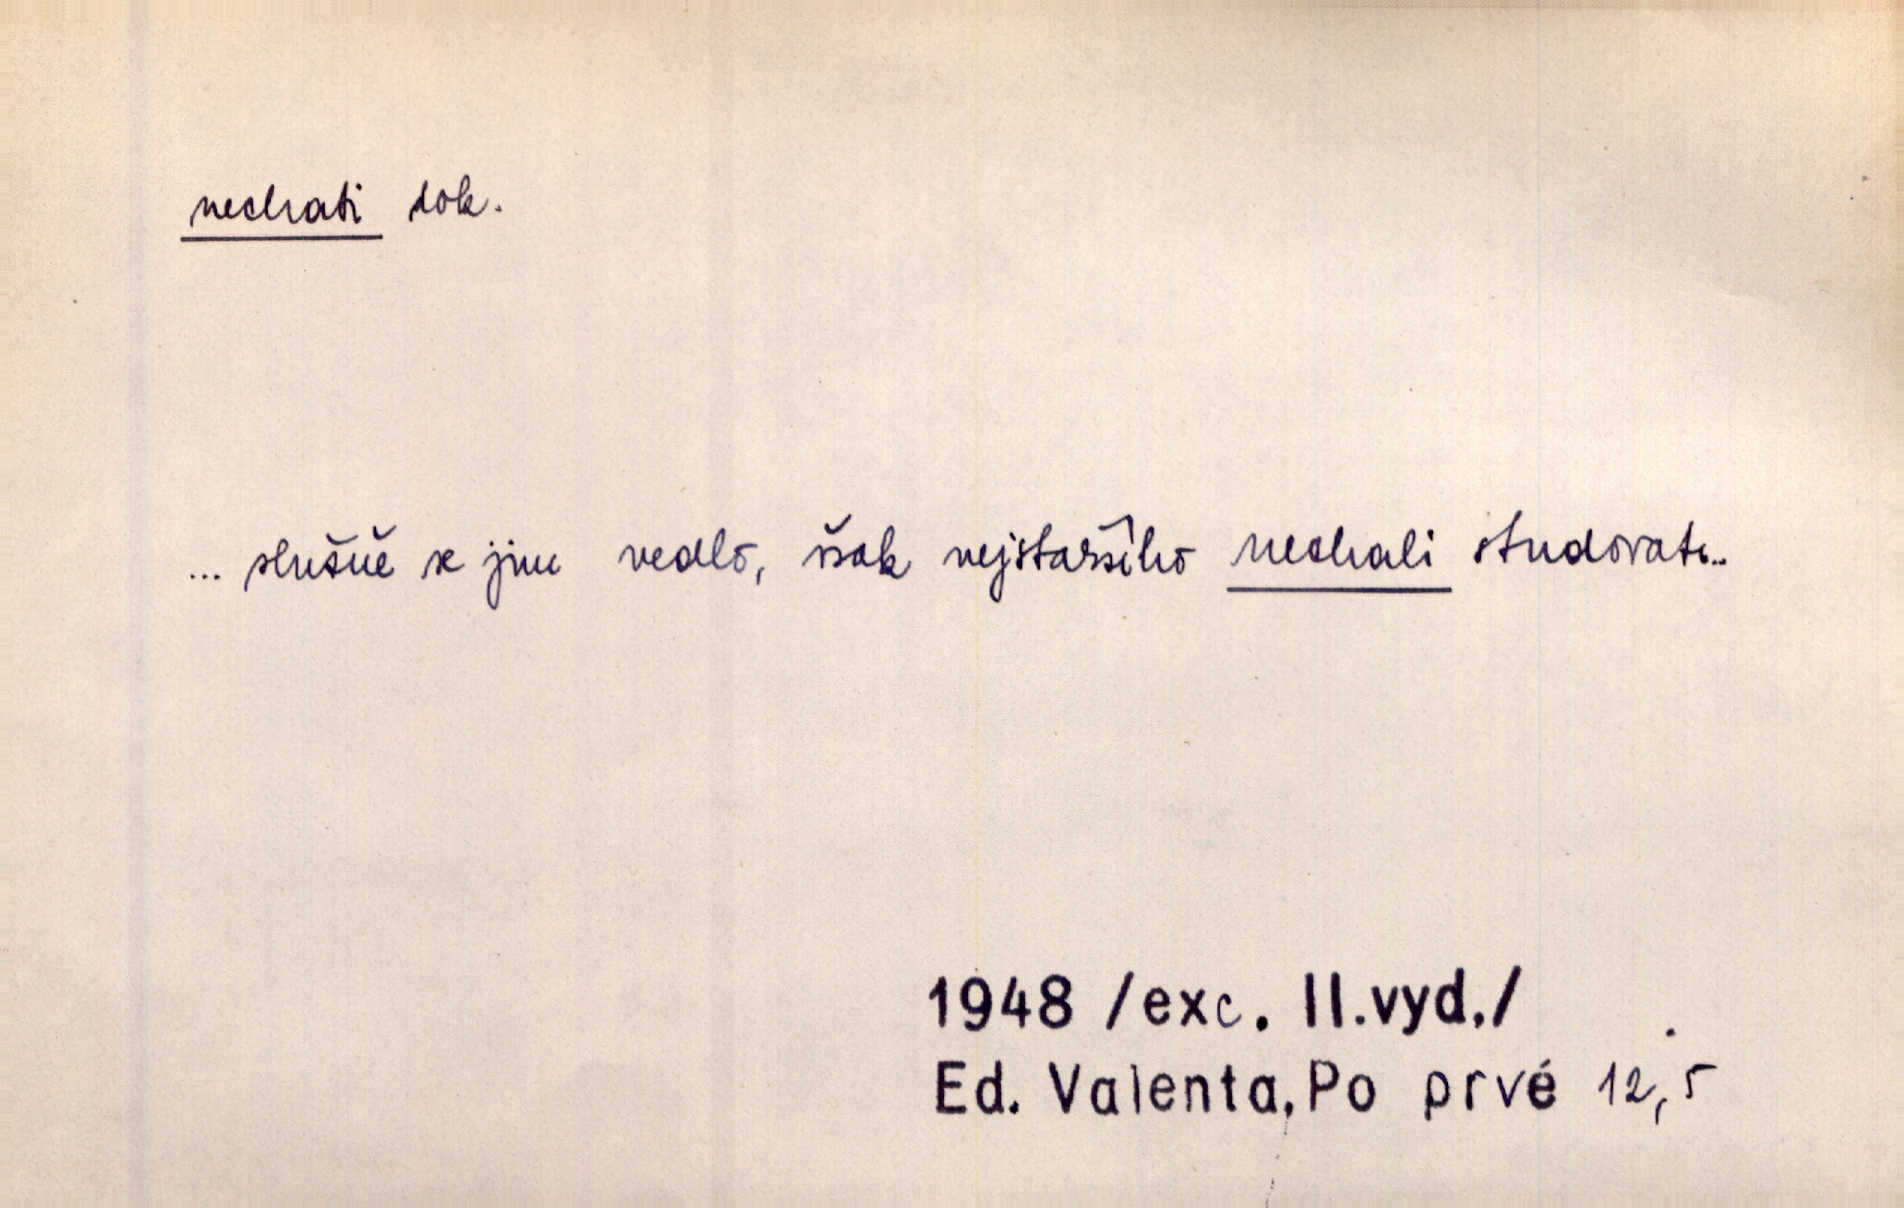 nechati dok.
... slušně se jim vedlo, však nejstaršího nechali studovati..
1948 /exc. II.vyd./
Ed. Valenta, Po prvé 12,5